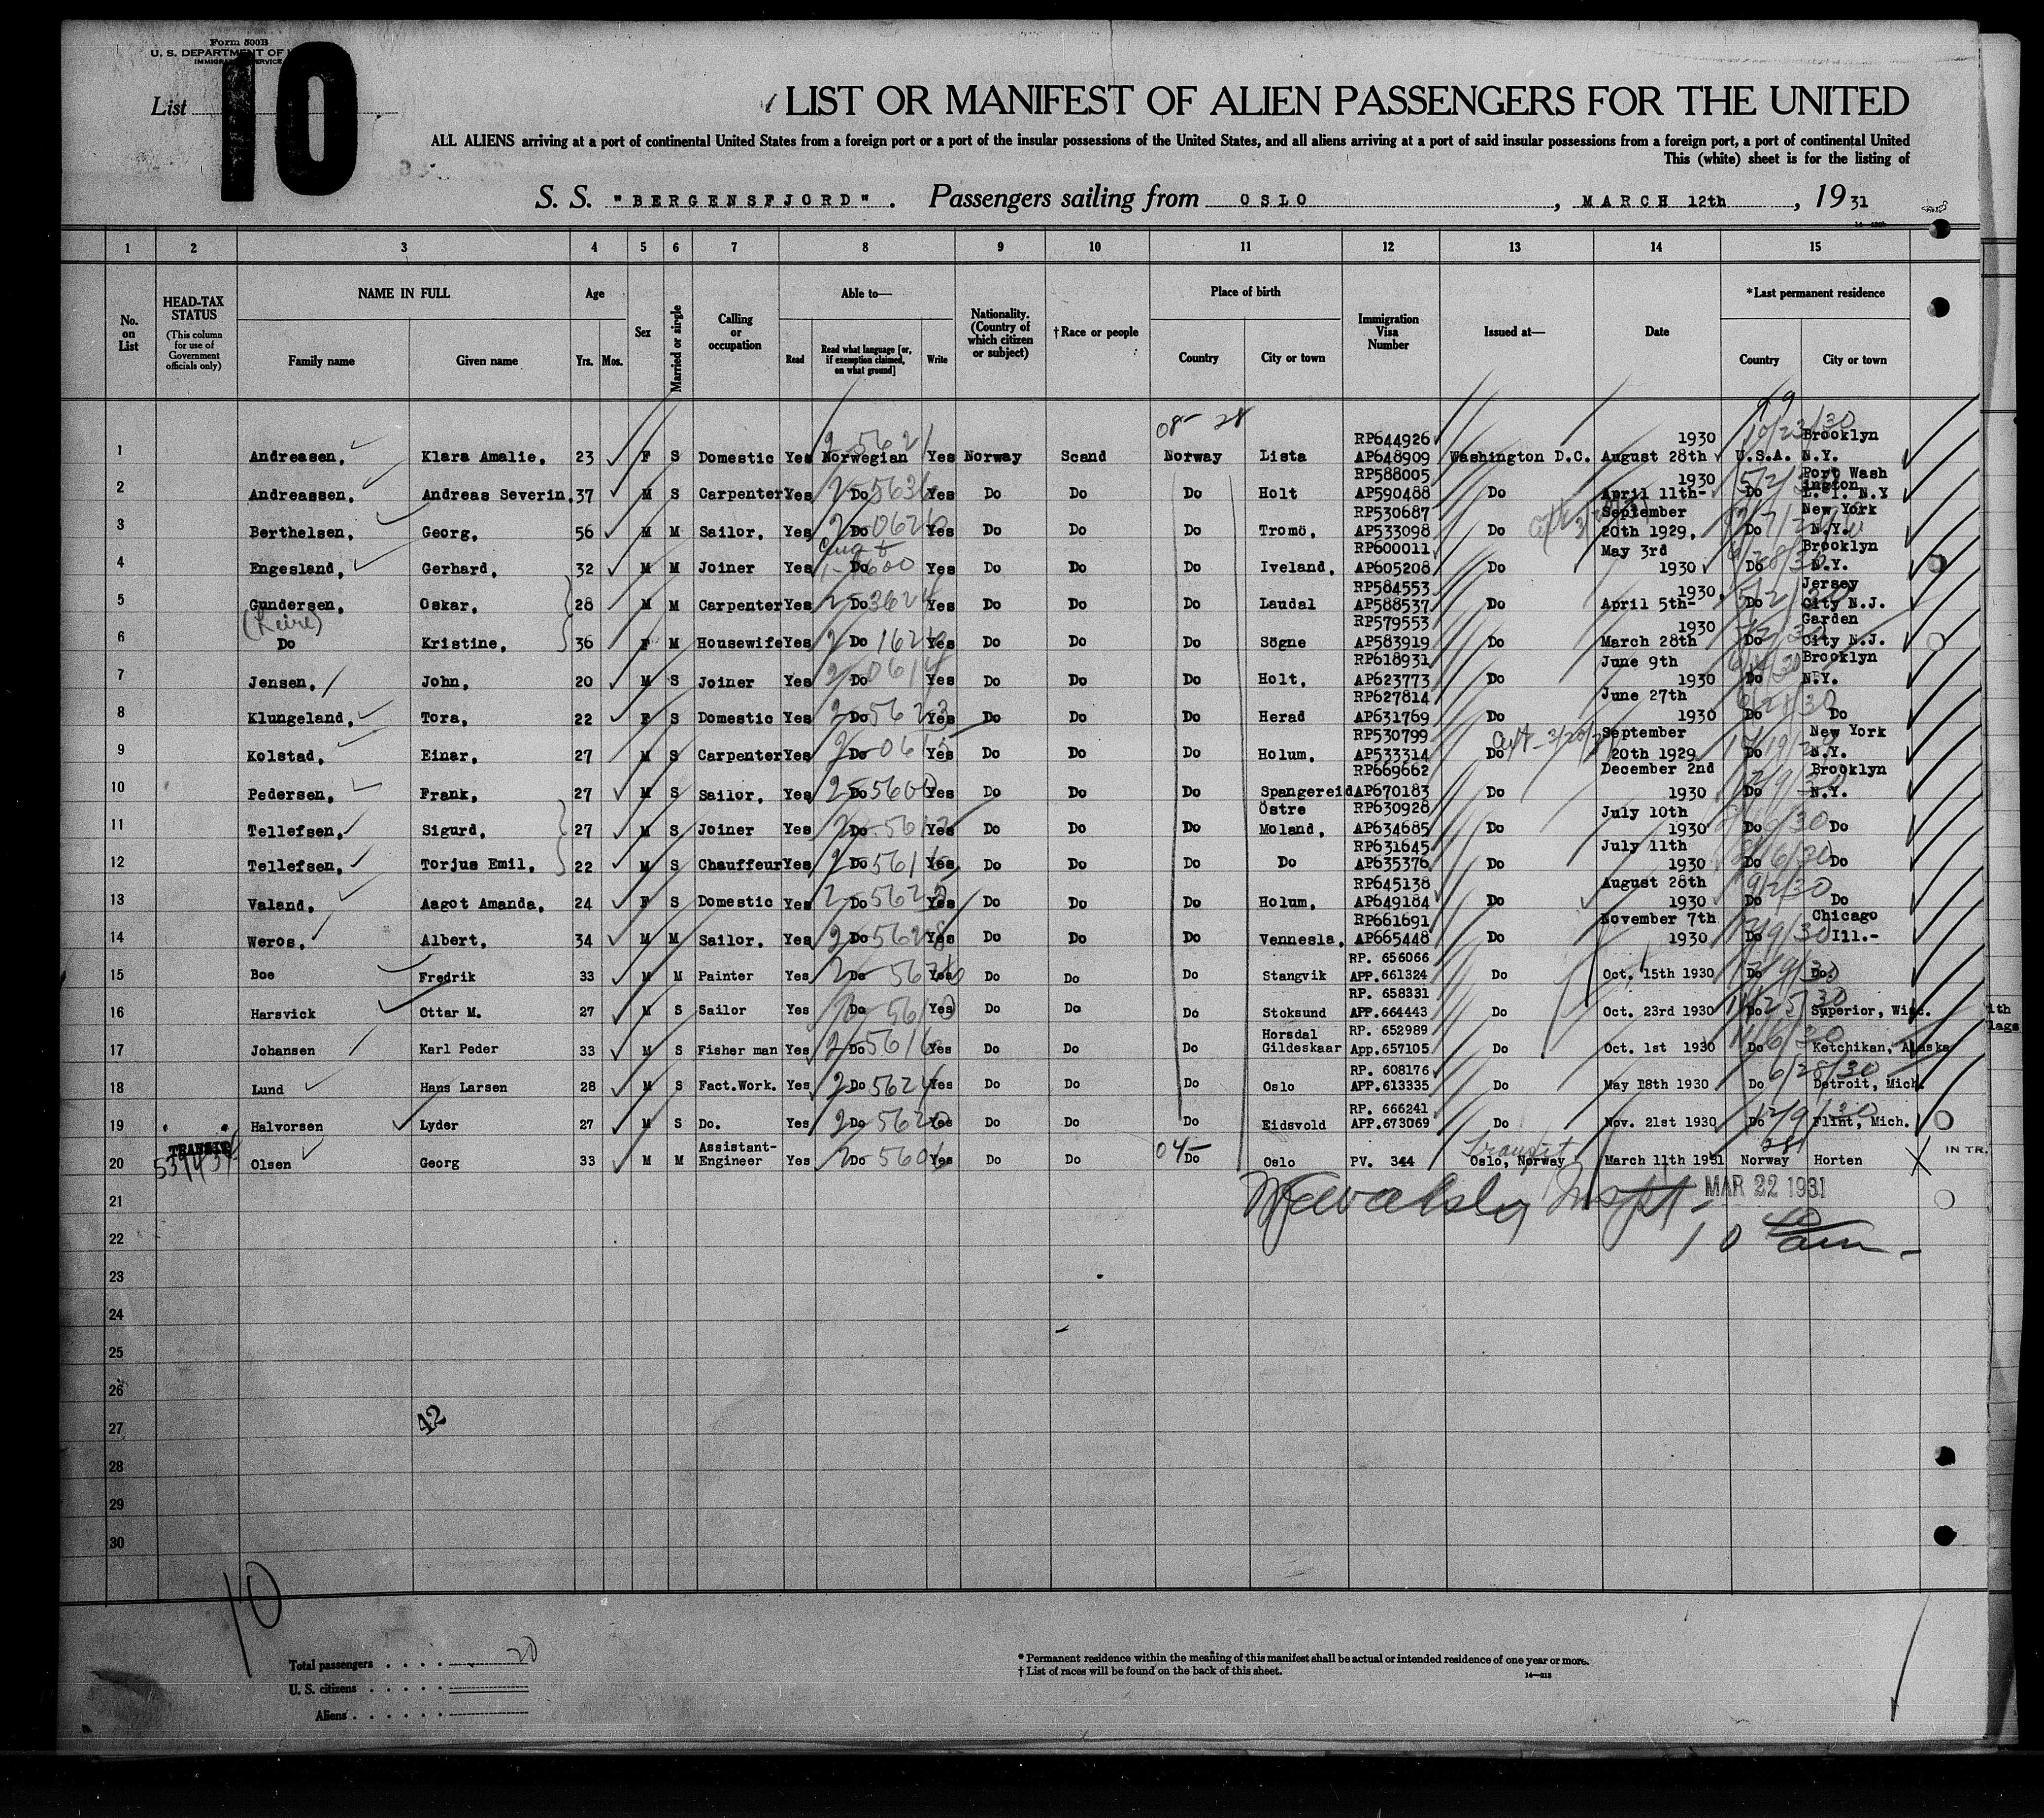 Form 500B
U. S. DEPARTMENT OF
IMMIGRATION SERVICE
List 10
LIST OR MANIFEST OF ALIEN PASSENGERS FOR THE UNITED
ALL ALIENS arriving at a port of continental United States from a foreign port or a port of the insular possessions of the United States, and all aliens arriving at a port of said insular possessions from a foreign port, a port of continental United
This (white) sheet is for the listing of
S. S. "BERGENSFJORD". Passengers sailing from OSLO, MARCH 12th, 1931
1 2 3 4 5 6 7 8 9 10 11 12 13 14 15
No. on List
HEAD-TAX STATUS (This column for use of Government officials only)
NAME IN FULL Family name Given name
Age Yrs. Mos.
Sex
Married or single
Calling or occupation
Able to— Read Read what language [or, if exemption claimed, on what ground] Write
Nationality. (Country of which citizen or subject)
†Race or people
Place of birth Country City or town
Immigration Visa Number
Issued at—
Date
*Last permanent residence Country City or town
08- 28
1 Andreasen, Klara Amalie, 23 F S Domestic Yes Norwegian Yes Norway Scand Norway Lista RP644926 AP648909 Washington D.C. August 28th 1930 U.S.A. Brooklyn N.Y. 10/23/30
2 Andreassen, Andreas Severin, 37 M S Carpenter Yes Do Yes Do Do Do Holt RP588005 AP590488 Do April 11th- 1930 Do Port Washington L. I. N.Y
3 Berthelsen, Georg, 56 M M Sailor, Yes Do Yes Do Do Do Tromö, RP530687 AP533098 Do September 20th 1929, Do New York N.Y.
4 Engesland, Gerhard, 32 M M Joiner Yes Do Yes Do Do Do Iveland, RP600011 AP605208 Do May 3rd 1930 Do Brooklyn N.Y.
5 Gundersen, Oskar, 28 M M Carpenter Yes Do Yes Do Do Do Laudal RP584553 AP588537 Do April 5th- 1930 Do Jersey City N.J.
6 Do Kristine, 36 F M Housewife Yes Do Yes Do Do Do Sögne RP579553 AP583919 Do March 28th 1930 Do Garden City N.J.
7 Jensen, John, 20 M S Joiner Yes Do Yes Do Do Do Holt, RP618931 AP623773 Do June 9th 1930 Do Brooklyn N.Y.
8 Klungeland, Tora, 22 F S Domestic Yes Do Yes Do Do Do Herad RP627814 AP631769 Do June 27th 1930 Do Do
9 Kolstad, Einar, 27 M S Carpenter Yes Do Yes Do Do Do Holum, RP530799 AP533314 Do September 20th 1929 Do New York N.Y.
10 Pedersen, Frank, 27 M S Sailor, Yes Do Yes Do Do Do Spangereid RP669662 AP670183 Do December 2nd 1930 Do Brooklyn N.Y.
11 Tellefsen, Sigurd, 27 M S Joiner Yes Do Yes Do Do Do Östre Moland, RP630928 AP634685 Do July 10th 1930 Do Do
12 Tellefsen, Torjus Emil, 22 M S Chauffeur Yes Do Yes Do Do Do Do RP631645 AP635376 Do July 11th 1930 Do Do
13 Valand, Aagot Amanda, 24 F S Domestic Yes Do Yes Do Do Do Holum, RP645138 AP649184 Do August 28th 1930 Do Do
14 Weros, Albert, 34 M M Sailor, Yes Do Yes Do Do Do Vennesla, RP661691 AP665448 Do November 7th 1930 Do Chicago Ill.-
15 Boe Fredrik 33 M M Painter Yes Do Yes Do Do Do Stangvik RP. 656066 APP.661324 Do Oct. 15th 1930 Do Do.
16 Harsvick Ottar M. 27 M S Sailor Yes Do Yes Do Do Do Stoksund RP. 658331 APP.664443 Do Oct. 23rd 1930 Do Superior, Wisc.
17 Johansen Karl Peder 33 M S Fisher man Yes Do Yes Do Do Do Horsdal Gildeskaar RP. 652989 App.657105 Do Oct. 1st 1930 Do Ketchikan, Alaska
18 Lund Hans Larsen 28 M S Fact.Work. Yes Do Yes Do Do Do Oslo RP. 608176 APP.613335 Do May 18th 1930 Do Detroit, Mich. 6/28/30
19 Halvorsen Lyder 27 M S Do. Yes Do Yes Do Do Do Eidsvold RP. 666241 APP.673069 Do Nov. 21st 1930 Do Flint, Mich. 12/9/30
20 TRANSIT Olsen Georg 33 M M Assistant-Engineer Yes Do Yes Do Do 04- Do Oslo PV. 344 Transit Oslo, Norway March 11th 1931 Norway Horten IN TR.
21 MAR 22 1931
22
23
24
25
26
27 42
28
29
30
10
Total passengers . . . . 20
U. S. citizens . . . . .
Aliens . . . . . .
* Permanent residence within the meaning of this manifest shall be actual or intended residence of one year or more.
† List of races will be found on the back of this sheet.
14—213